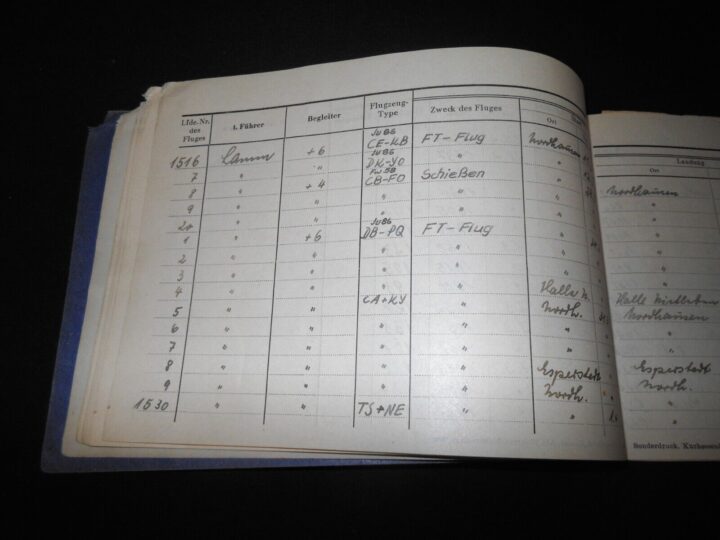 Lfde. Nr. des Fluges 1. Führer Begleiter Flugzeug-Type Zweck des Fluges Ort Landung Ort
1516 +6 Ju 86 CE-KB FT-Flug Nordhausen
7 " " Ju 86 DK-YO " " Nordhausen
8 " +4 Fw 58 CB-FO Schießen " "
9 " " " " " "
20 " " " " " "
1 " +6 Ju 86 DB-PQ FT-Flug " "
2 " " " " " "
3 " " " " " "
4 " " " " Halle N. Halle Nietleben
5 " " CA+KY " Nordh. Nordhausen
6 " " " " "
7 " " " " "
8 " " " Esperstedt Esperstedt
9 " " " Nordh. Nordh.
1530 " " TS+NE " " "
Sonderdruck.